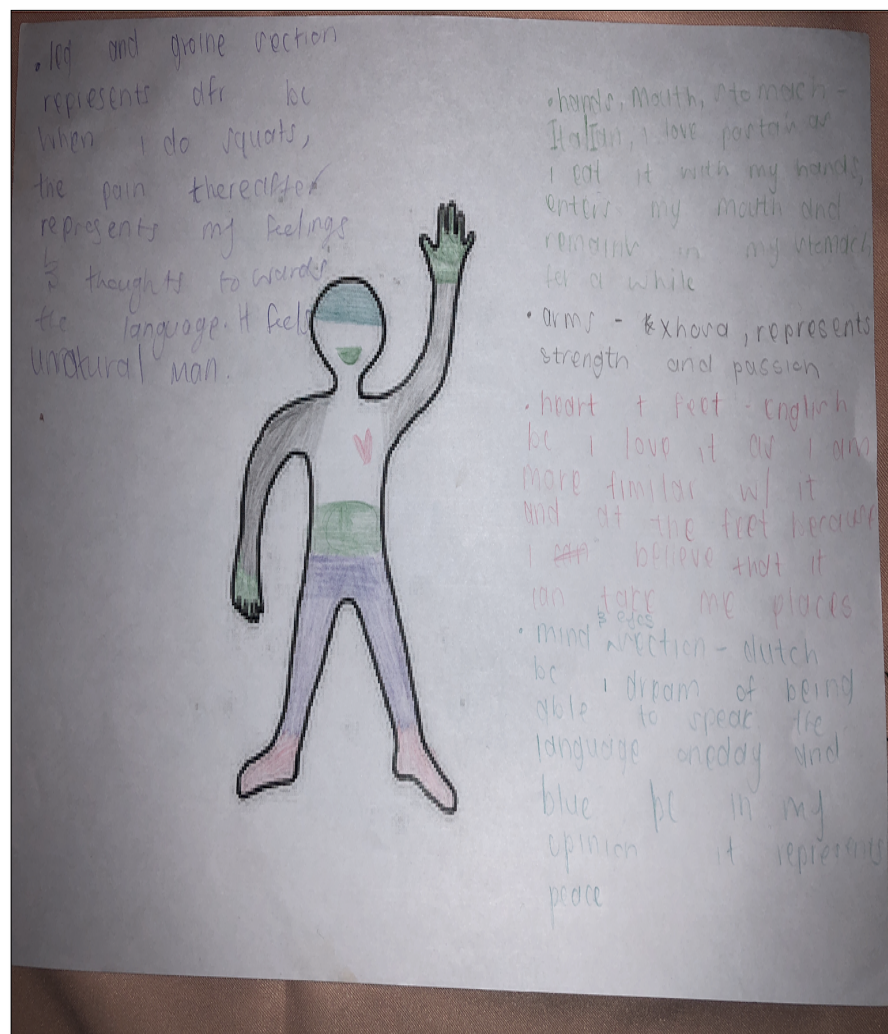 • leg and groine section
represents afr bc
when i do squats,
the pain thereafter
represents my feelings
& thoughts towards
the language. It feels
unatural man.
•
• hands, Mouth, stomach -
Italian, i love pasta as
i eat it with my hands,
enters my mouth and
remains in my stomach
for a while
• arms - xhosa, represents
strength and passion
• heart + feet - English
bc i love it as I am
more fimilar w/ it
and at the feet because
I can believe that it
can take me places
& eyes
• mind section - dutch
bc i dream of being
able to speak the
language oneday and
blue bc in my
opinion it represents
peace